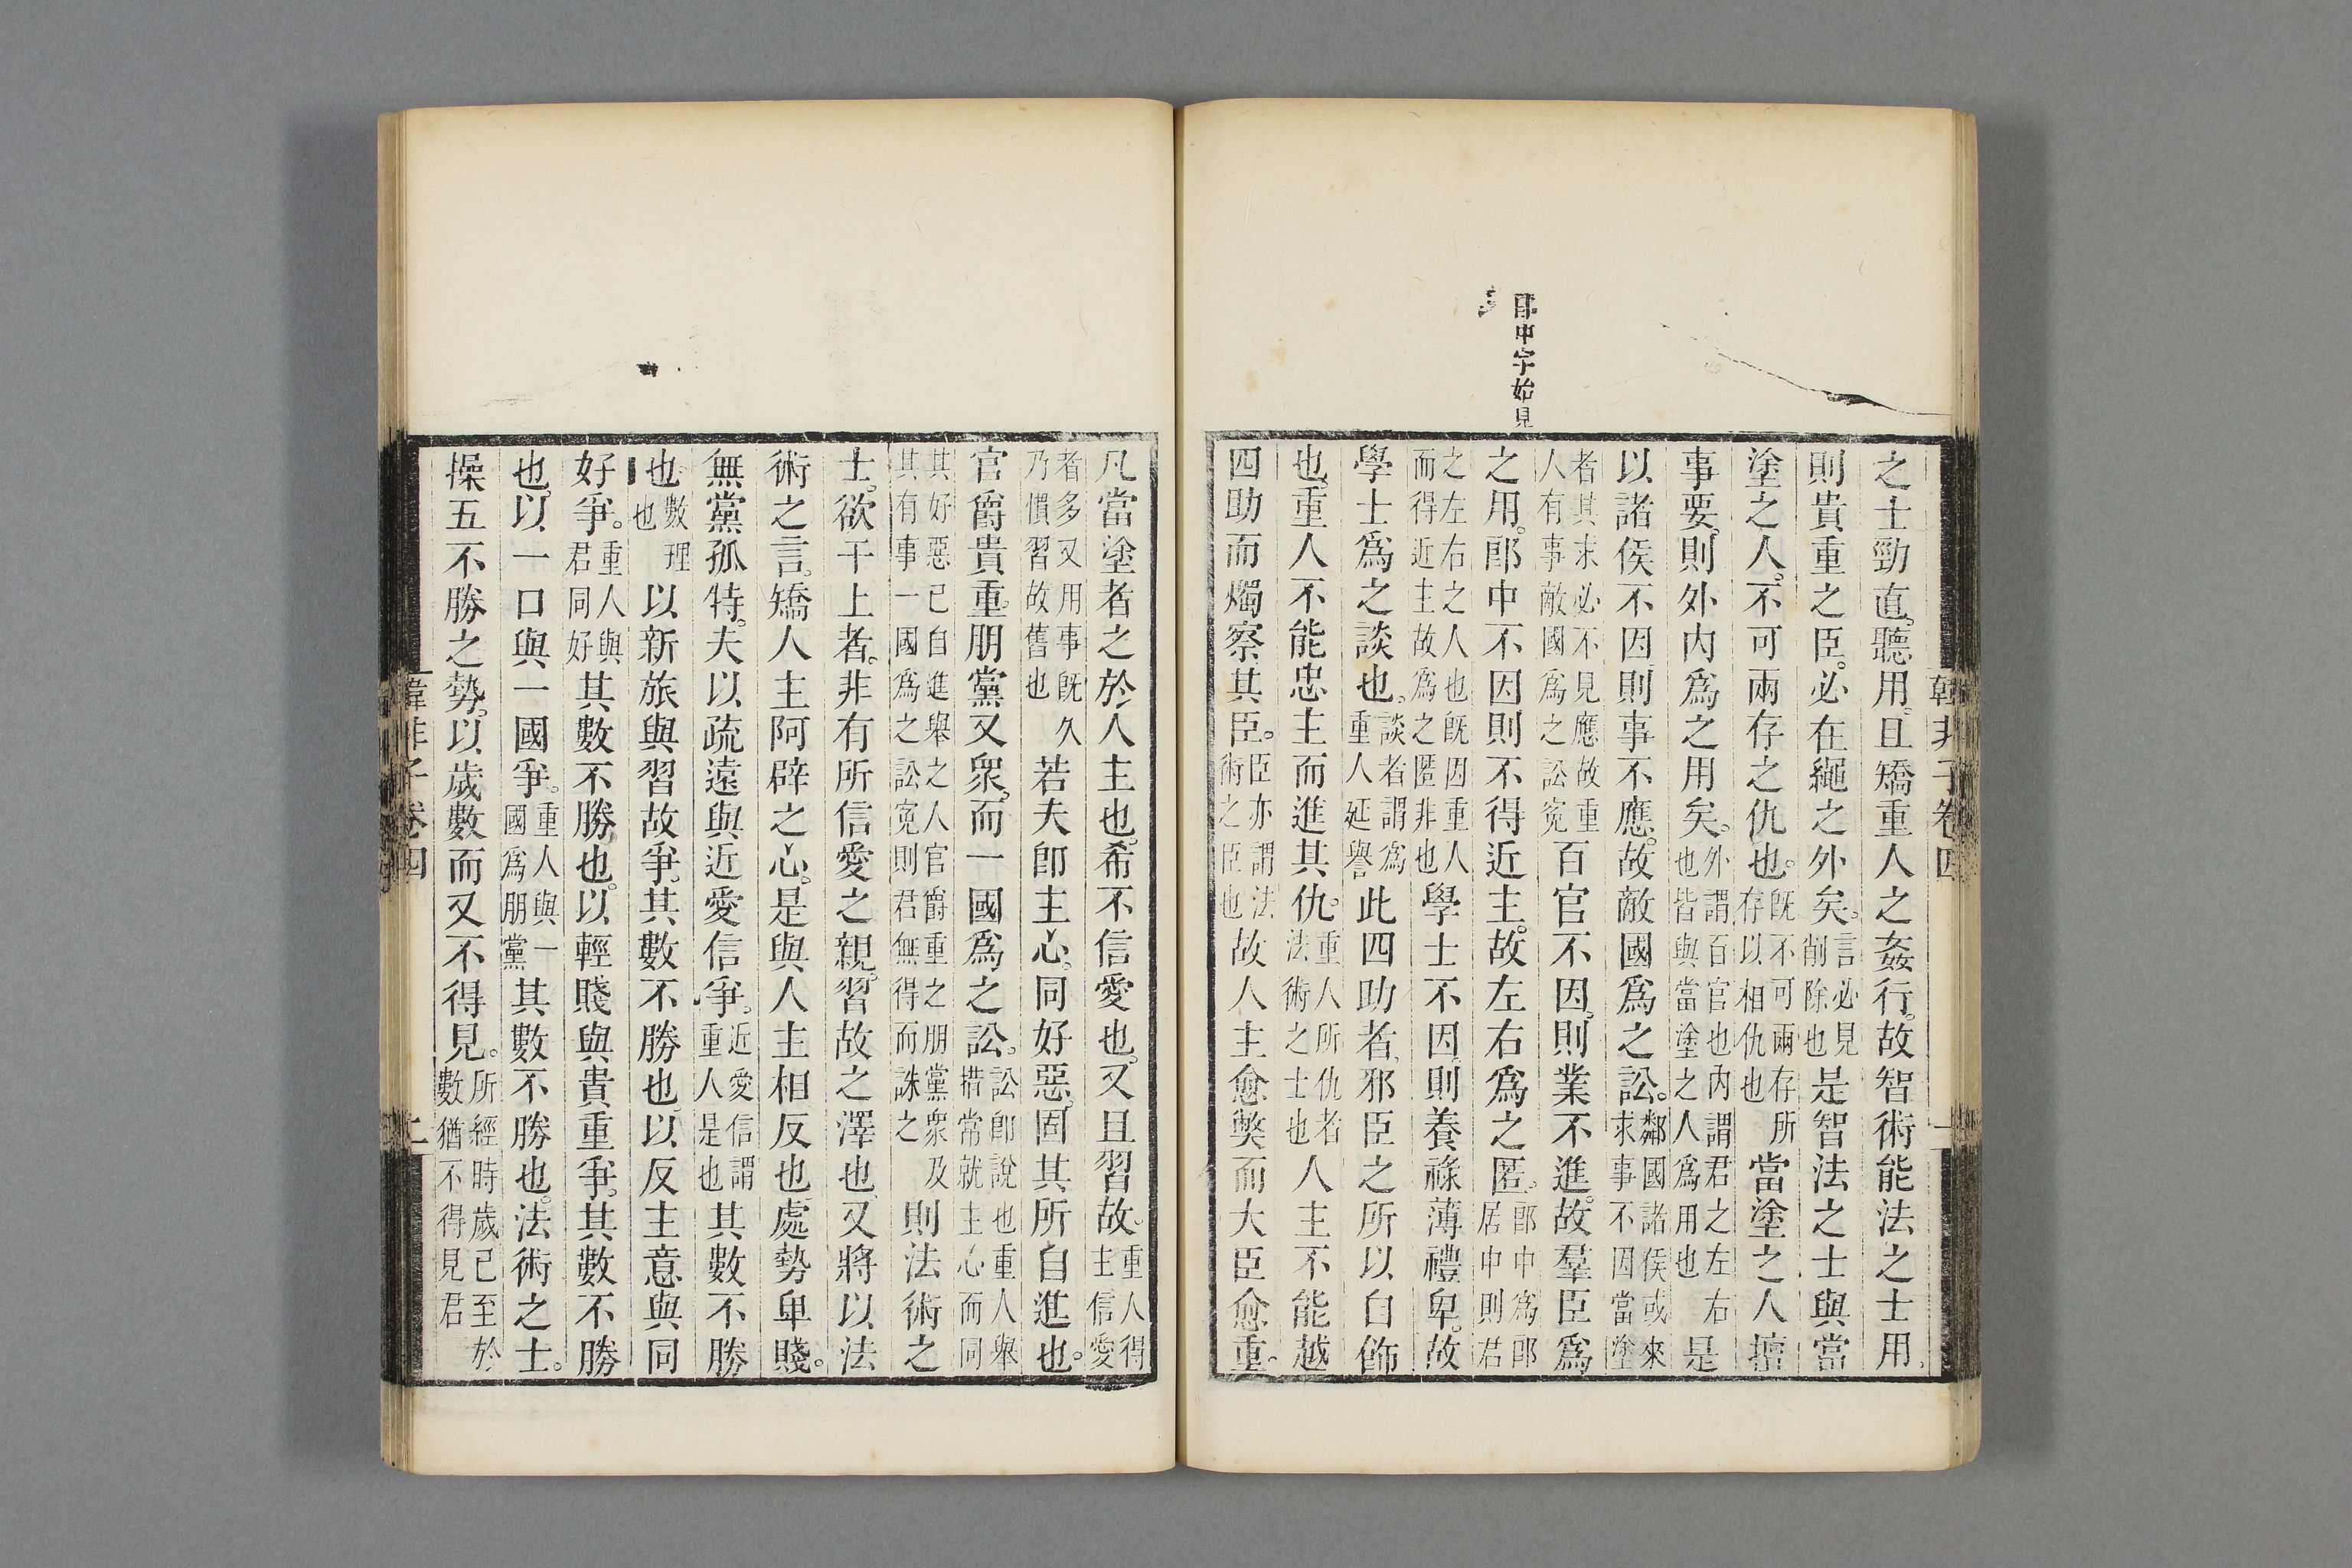 郎中字始見
韓非子卷四
之士勁直聽用且矯重人之姦行故智術能法之士用
則貴重之臣必在繩之外矣言必見削除也是智法之士與當
塗之人不可兩存之仇也既不可兩存所存以相仇也當塗之人擅
事要則外內爲之用矣外謂百官也內謂君之左右也皆與當塗之人爲用也是
以諸侯不因則事不應故敵國爲之訟鄰國諸侯或來求事不因當塗
者其求必不見應故重人有事敵國爲之訟寃百官不因則業不進故羣臣爲
之用郎中不因則不得近主故左右爲之匿郎中爲郎居中則君
之左右之人也既因重人而得近主故爲之匿非也學士不因則養祿薄禮卑故
學士爲之談也談者謂爲重人延譽此四助者邪臣之所以自飾
也重人不能忠主而進其仇重人所仇者法術之士也人主不能越
四助而燭察其臣臣亦謂法術之臣也故人主愈獘而大臣愈重
凡當塗者之於人主也希不信愛也又且習故重人得主信愛
者多又用事既久乃慣習故舊也若夫卽主心同好惡固其所自進也
官爵貴重朋黨又衆而一國爲之訟訟卽說也重人舉措常就主心而同
其好惡已自進舉之人官爵重之朋黨衆及其有事一國爲之訟寃則君無得而誅之則法術之
士欲干上者非有所信愛之親習故之澤也又將以法
術之言矯人主阿辟之心是與人主相反也處勢卑賤
無黨孤特夫以疏遠與近愛信爭近愛信謂重人是也其數不勝
也數理也以新旅與習故爭其數不勝也以反主意與同
好爭重人與君同好其數不勝也以輕賤與貴重爭其數不勝
也以一口與一國爭重人與一國爲朋黨其數不勝也法術之士
操五不勝之勢以歲數而又不得見所經時歲已至於數猶不得見君
韓非子卷四
二